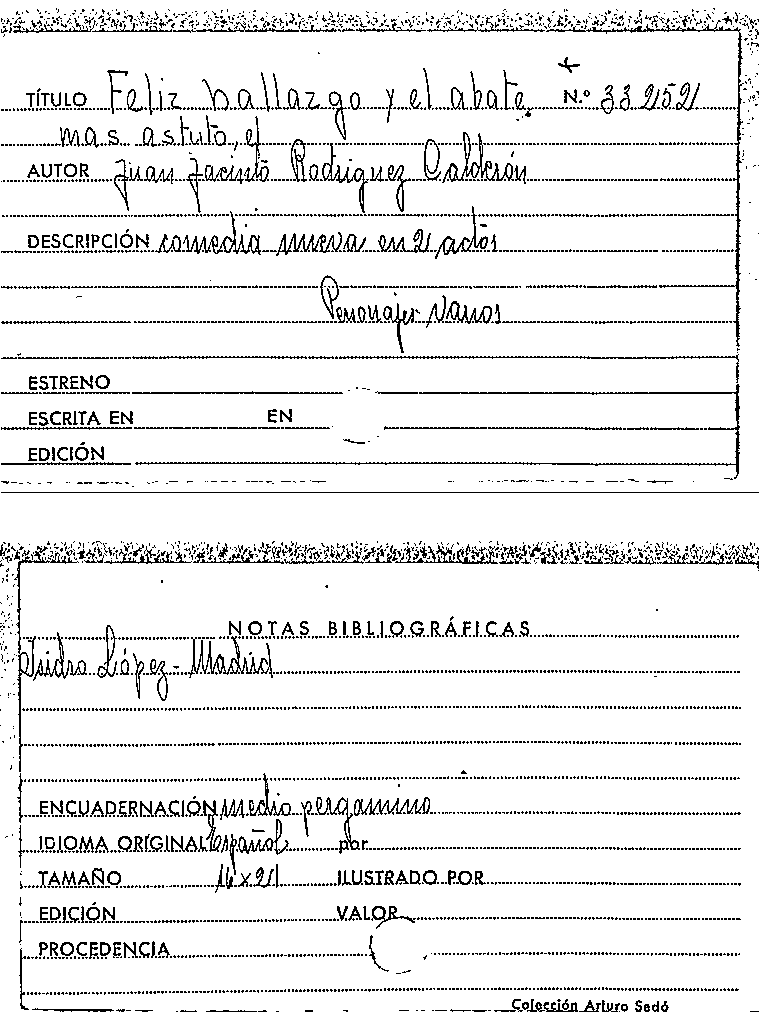 TÍTULO Feliz hallazgo y el abate N.º 332521
mas astuto, el
AUTOR Juan Jacinto Rodriguez Calderón
DESCRIPCIÓN comedia nueva en 2 actos
Personajes varios
ESTRENO
ESCRITA EN EN
EDICIÓN
NOTAS BIBLIOGRÁFICAS
Isidro López - Madrid
ENCUADERNACIÓN media pergamino
IDIOMA ORIGINAL Español por
TAMAÑO x 21 ILUSTRADO POR
EDICIÓN VALOR
PROCEDENCIA
Colección Arturo Sedó